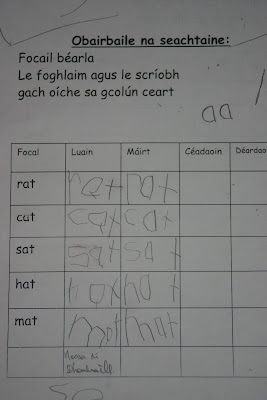 Obairbaile na seachtaine:
Focail béarla
Le foghlaim agus le scríobh
gach oíche sa gcolún ceart
Focal Luain Máirt Céadaoin Déardao
rat rat rat
cut cat cat
sat sat sat
hat hat hat
mat mat mat